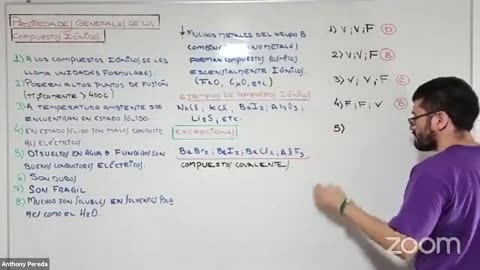 PROPIEDADES GENERALES DE LOS
COMPUESTOS IÓNICOS
1) A LOS COMPUESTOS IÓNICOS SE LES
LLAMA UNIDADES FORMULARES.
2) POSEEN ALTOS PUNTOS DE FUSIÓN
(TÍPICAMENTE > 400C)
3) A TEMPERATURA AMBIENTE SE
ENCUENTRAN EN ESTADO SÓLIDO.
4) EN ESTADO SÓLIDO SON MALOS CONDUCTO
RES ELÉCTRICOS.
5) DISUELTOS EN AGUA O FUNDIDOS SON
BUENOS CONDUCTORES ELÉCTRICOS.
6) SON DUROS
7) SON FRÁGIL
8) MUCHOS SON SOLUBLES EN SOLVENTES POLA
RES COMO EL H2O.
↓ MUCHOS METALES DEL GRUPO B
COMBINADOS NO METALES
FORMAN COMPUESTOS QUÍMICOS
ESCENCIALMENTE IÓNICOS.
(FeO, CuO, etc
EJEMPLOS DE COMPUESTOS IÓNICOS
NaCl, KCl, BaI2,
Li2S, etc.
EXCEPCIONES
BeBr2; BeI2; BeCl2; AlF3
COMPUESTOS COVALENTES
1) V; V; F D
2) V; F B
3) V; V; F C
4) F; F; V B
5)
Anthony Pereda
zoom